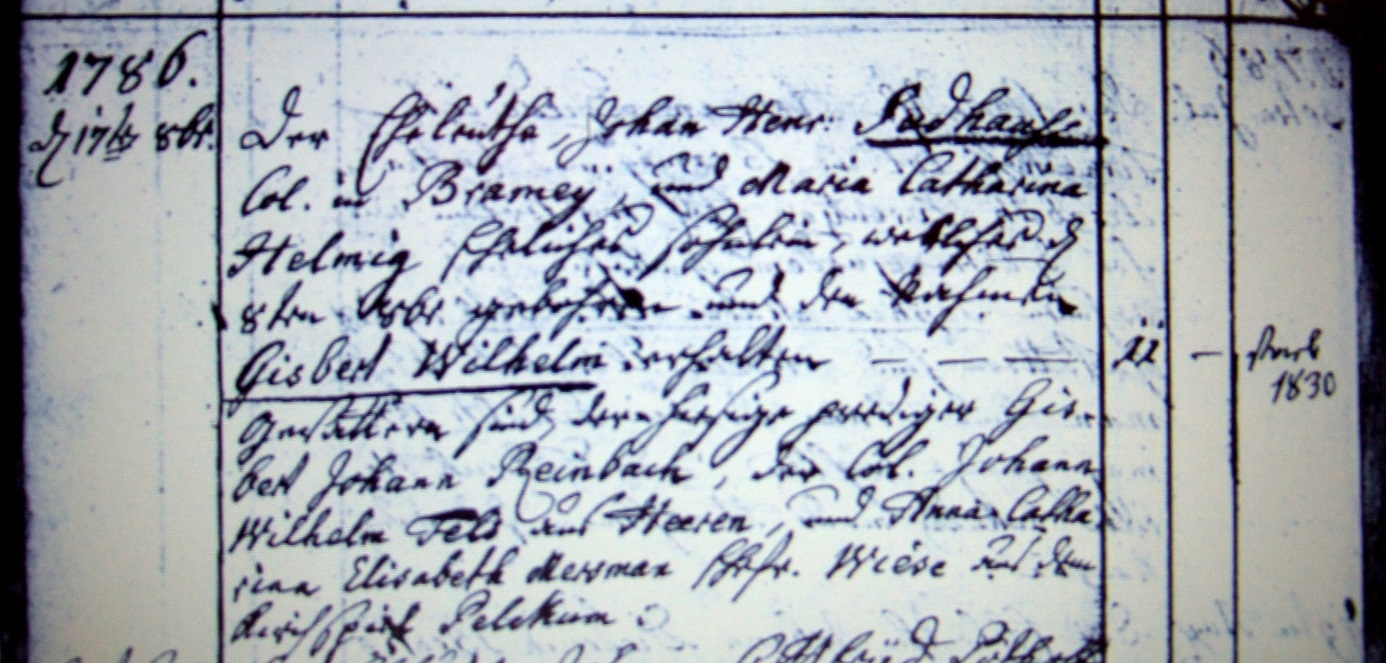 1786.
d 17ten 8br. Der Eheleuthe, Johan Henr: Südhaus
Col. in Bramey, und Maria Catharina
Helmig Eheliches Söhnlein, welches d
8ten 8br gebohren und den Nahmen
Gisbert Wilhelm erhalten — — — — 11 — starb
1830
Gevattern sind, der hiesige prediger Gis-
bert Johann Reinbach, der Col. Johann
Wilhelm Feld aus Heeren, und Anna Catha
rina Elisabeth Merman Ehefr. Wiese aus dem
Kirchspiel Pelkum.